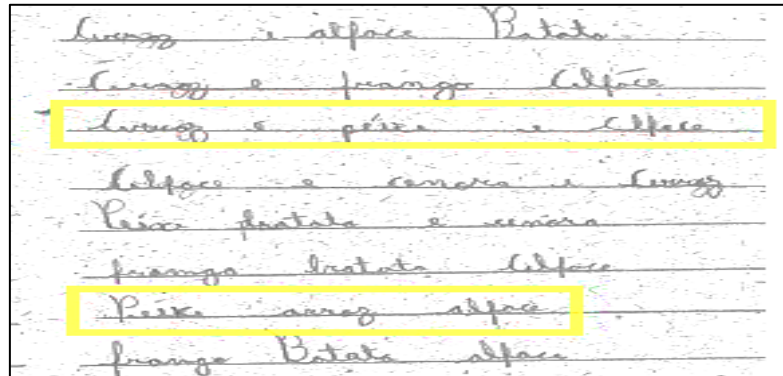 Arroz e alface Batata
Arroz e frango Alface
Arroz e péixe e Alface
Alface e cenora e Arroz
Peixe batata e cenora
frango batata Alface
Peixe arroz alface
frango Batata alface